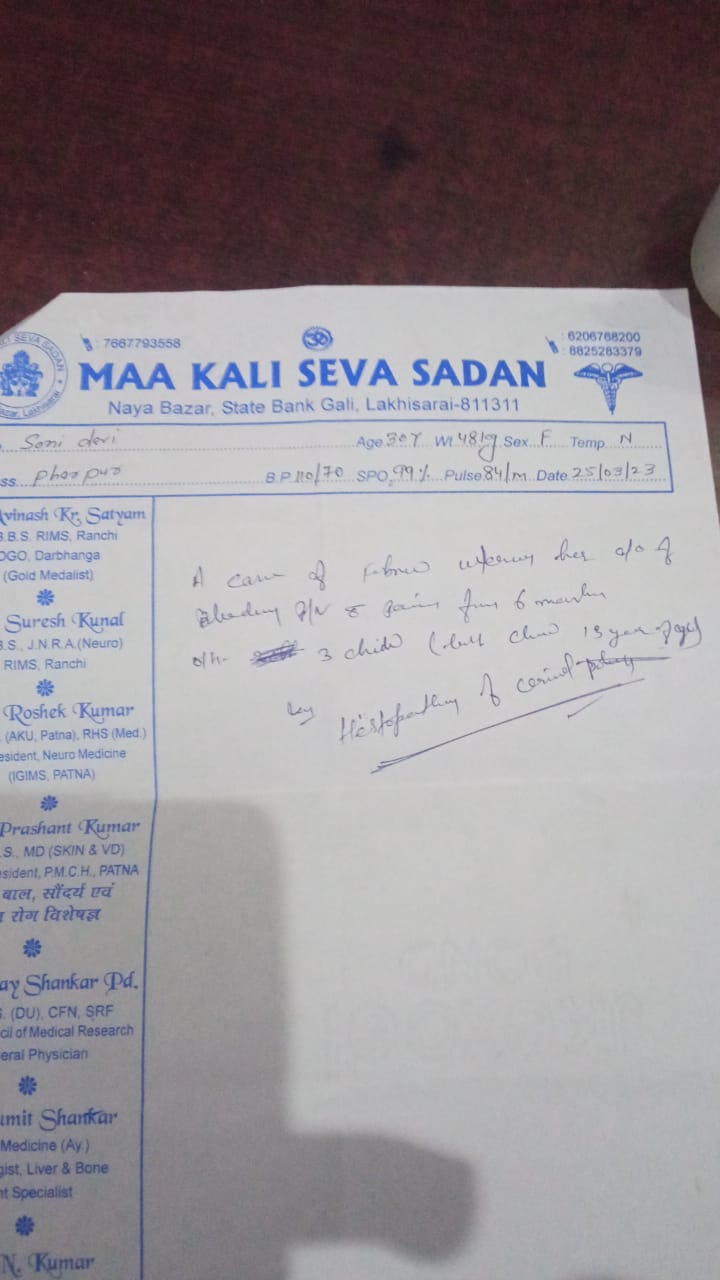 KALI SEVA SADAN
Bazar, Lakhisarai
: 7667793558
: 6206768200
: 8825283379
MAA KALI SEVA SADAN
Naya Bazar, State Bank Gali, Lakhisarai-811311
Soni devi Age 30Y Wt 48kg Sex F Temp N
ss. B.P 110/70 SPO2 99% Pulse 84/m Date 25/03/23
vinash Kr. Satyam
.B.S. RIMS, Ranchi
DGO, Darbhanga
(Gold Medalist)
Suresh Kunal
.S., J.N.R.A.(Neuro)
RIMS, Ranchi
Roshek Kumar
(AKU, Patna), RHS (Med.)
esident, Neuro Medicine
(IGIMS, PATNA)
Prashant Kumar
.S., MD (SKIN & VD)
esident, P.M.C.H., PATNA
बाल, सौंदर्य एवं
रोग विशेषज्ञ
ay Shankar Pd.
. (DU), CFN, SRF
cil of Medical Research
eral Physician
umit Shankar
Medicine (Ay.)
gist, Liver & Bone
nt Specialist
N. Kumar
A case of her c/o of
Bleeding P/V pain 6 months
o/h- 3 child ( 13 year
Histopathy of